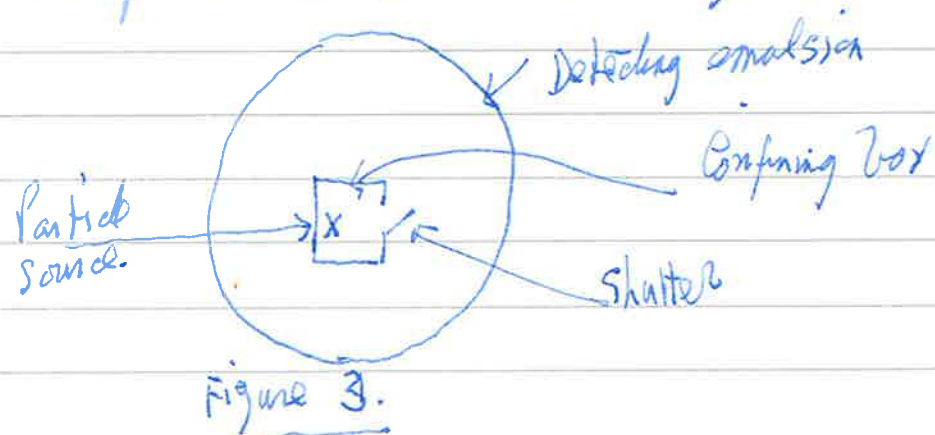 Detecting emulsion
Confining box
Particle
Source.
X
Shutter
Figure 3.